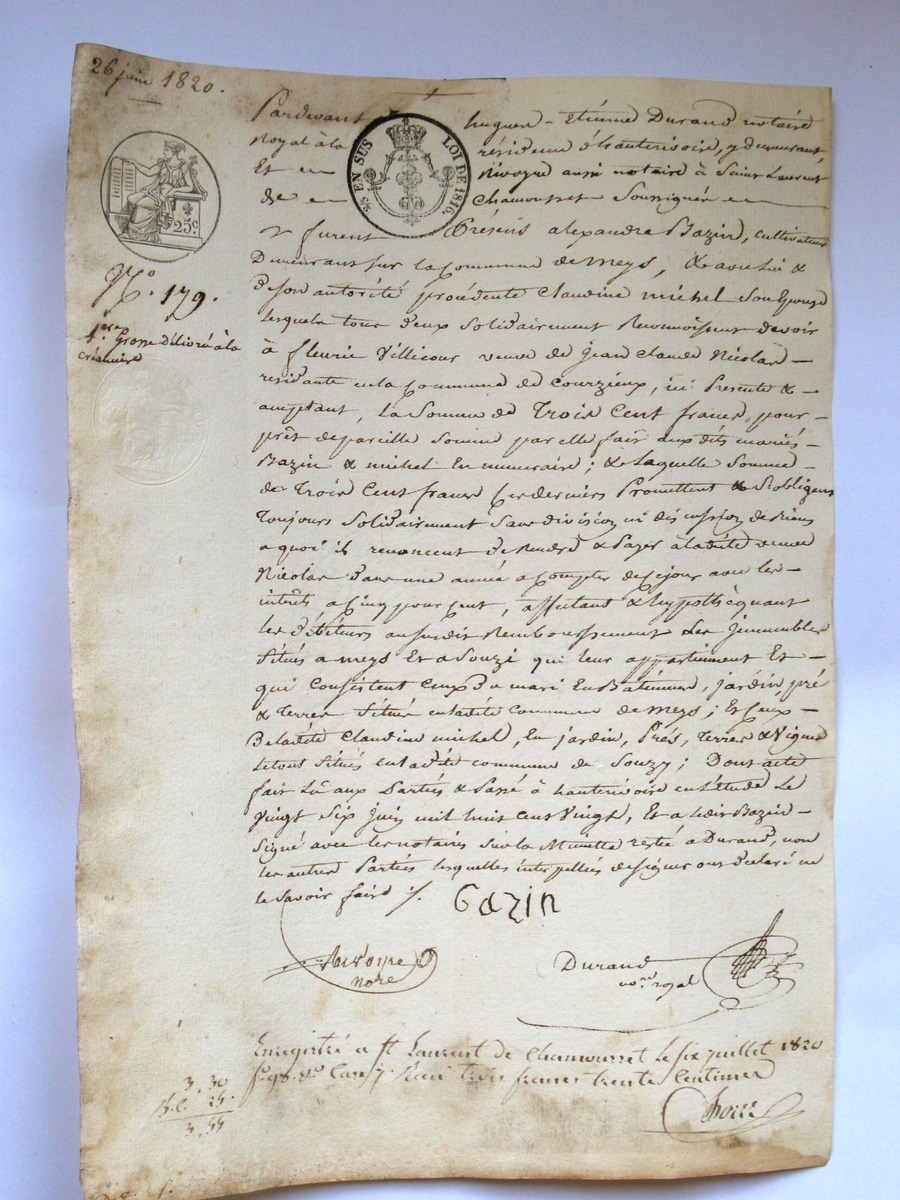 26 juin 1820.
Pardevant hugues-Etienne Durand notaire
Royal à la résidence d'hauterivoire, y demeurant,
Et Rivoyre aussi notaire à Saint Laurent
de Chamousset Soussignés
EN SUS LOI DE 1816.
25c
furent Présens alexandre Bazin, cultivateur
Demeurant sur la Commune de meys, & avec lui &
de son autorité procédente Claudine michel son Epouse
lesquels tous deux solidairement Reconnoissent devoir
N.o 179.
1ere Grosse délivrée à la
créancière
à fleurie Villicour veuve de jean Claude Nicolas
residante en la Commune de Courzieux, ici Presente &
acceptant, la Somme de Trois Cent francs, pour
prêt de pareille Somme par elle fait aux dits mariés
Bazin & michel En numeraire; & laquelle Somme
de Trois Cent francs ces derniers Promettent & s'obligent
Toujours Solidairement Sans division ni discussion de Biens
a quoi ils renoncent de Rendre & Payer à ladite veuve
Nicolas dans une année a Compter de ce jour avec les
intérêts a Cinq pour Cent, affectant & hypothèquant
les débiteurs au susdit Remboursement Les Jmmeubles
situés a meys Et a Souzi qui leur appartiennent Et
qui Consistent Ceux du mari En Bâtimens, jardin, pré
& terres Situés en ladite Commune de Meys; Et Ceux
De ladite Claudine michel, En jardin, Prés, Terres & Vignes
le tout Situés en ladite Commune de Souzy; Dont acte
fait Lû aux Parties & Passé à hauterivoire en l'étude Le
Vingt Six Juin mil huit cent Vingt, Et a ledit Bazin
Signé avec les notaires Sur la Minutte restée a Durand, non
les autres Parties lesquelles interpellées de signer ont déclaré ne
le Savoir faire ./.
Gazin
Rivoyre
nore
Durand
nore royal
Enregistré a St Laurent de Chamousset le six juillet 1820
fo 98 vo Case 7 Reçu trois francs trente Centimes
3.30
25.
3.55